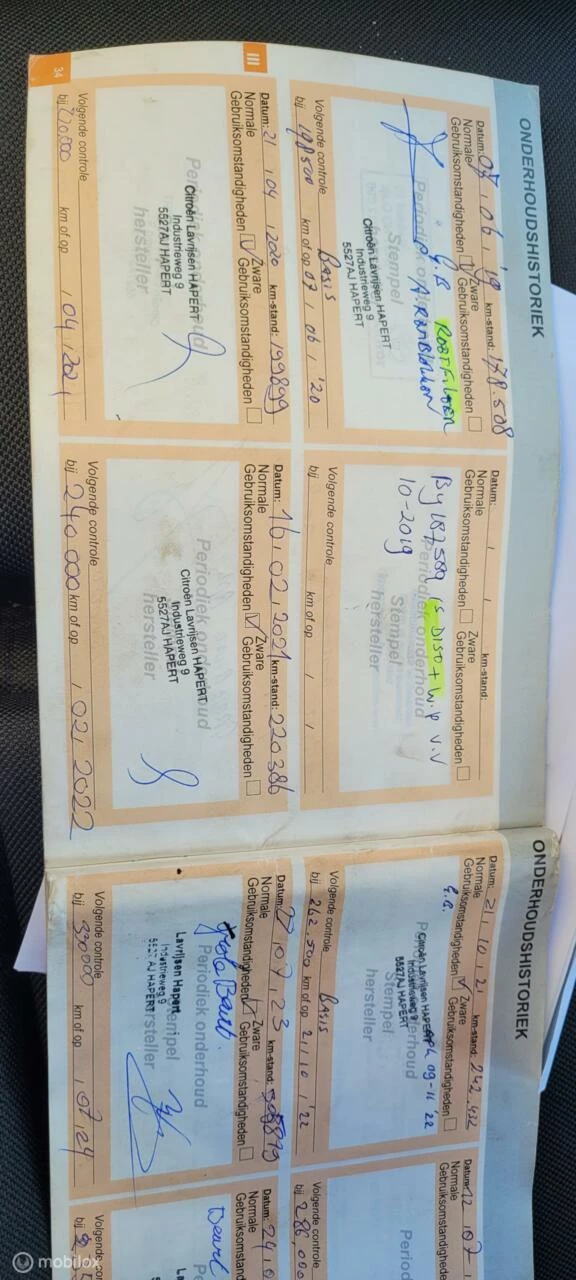 ONDERHOUDSHISTORIEK
Datum: 07, 06, '19 km-stand: 178.508
Normale Zware
Gebruiksomstandigheden Gebruiksomstandigheden
G.B
Periodiek onderhoud
Stempel
Citroën Lavrijsen HAPERT
Industrieweg 9
5527AJ HAPERT
Volgende controle BASIS
bij 198.500 km of op 07, 06, '20
Datum: 21, 04, 2020 km-stand: 199899
Normale Zware
Gebruiksomstandigheden Gebruiksomstandigheden
Periodiek onderhoud
Citroën Lavrijsen HAPERT
Industrieweg 9
5527AJ HAPERT
hersteller
Volgende controle
bij km of op , 04, 2021
34
III
Datum: , , km-stand:
Normale Zware
Gebruiksomstandigheden Gebruiksomstandigheden
By 187589 DISO + W.P V.V
10-2019
Periodiek onderhoud
Stempel
hersteller
Volgende controle
bij km of op , ,
Datum: 16, 02, 2021 km-stand: 220386
Normale Zware
Gebruiksomstandigheden Gebruiksomstandigheden
Periodiek onderhoud
Citroën Lavrijsen HAPERT
Industrieweg 9
5527AJ HAPERT
hersteller
Volgende controle
bij 240 000 km of op , 02, 2022
ONDERHOUDSHISTORIEK
Datum: 21, 10, 21 km-stand: 242.432
Normale Zware
Gebruiksomstandigheden Gebruiksomstandigheden
G.B. 09-11 '22
Citroën Lavrijsen HAPERT
Industrieweg 9
5527AJ HAPERT
Stempel
hersteller
Volgende controle BASIS
bij 262.500 km of op 21, 10, '22
Datum: 07, 23 km-stand:
Normale Zware
Gebruiksomstandigheden Gebruiksomstandigheden
Grote Beurt.
Periodiek onderhoud
Lavrijsen Hapert
Industrieweg 9
5527 AJ HAPERT
Volgende controle
bij 330000 km of op , 07, 24
Datum: 12, 07
Normale
Gebruiksomstandigheden
Volgende controle
bij 286,000
Datum: 24, 0
Normale
Gebruiksomstandigheden
Beurt
Volgende con
bij
mobilox